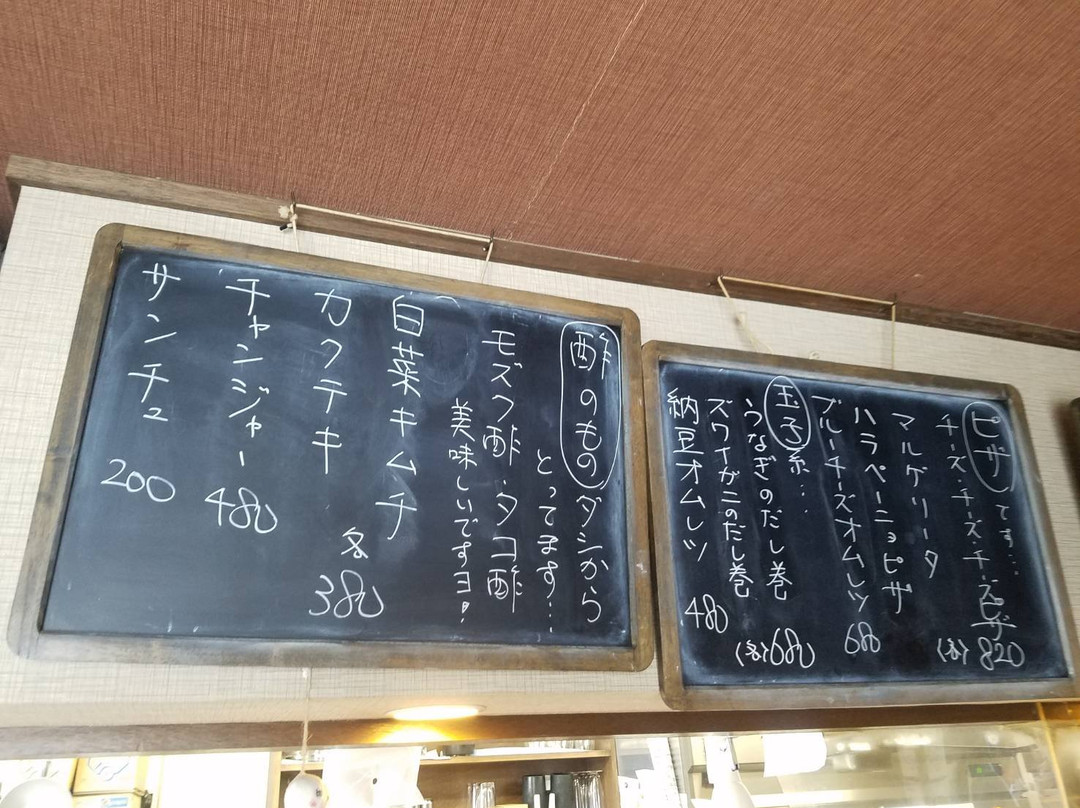 ピザです…
チーズ・チーズ・チーズピザ
マルゲリータ
ハラペーニョピザ
(各) 820
ブルーチーズオムレツ
680
玉子系…
うなぎのだし巻
ズワイガニのだし巻
(各) 680
納豆オムレツ
480
酢のもの ダシから
とってます…
モズク酢・タコ酢
美味しいですヨ!
白菜キムチ
カクテキ
各
380
チャンジャー
480
サンチュ
200